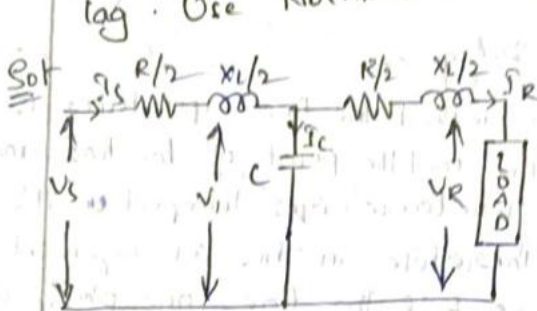 lag. Use
Sol
Is R/2 XL/2 R/2 XL/2 IR
Ic
Vs V C VR LOAD